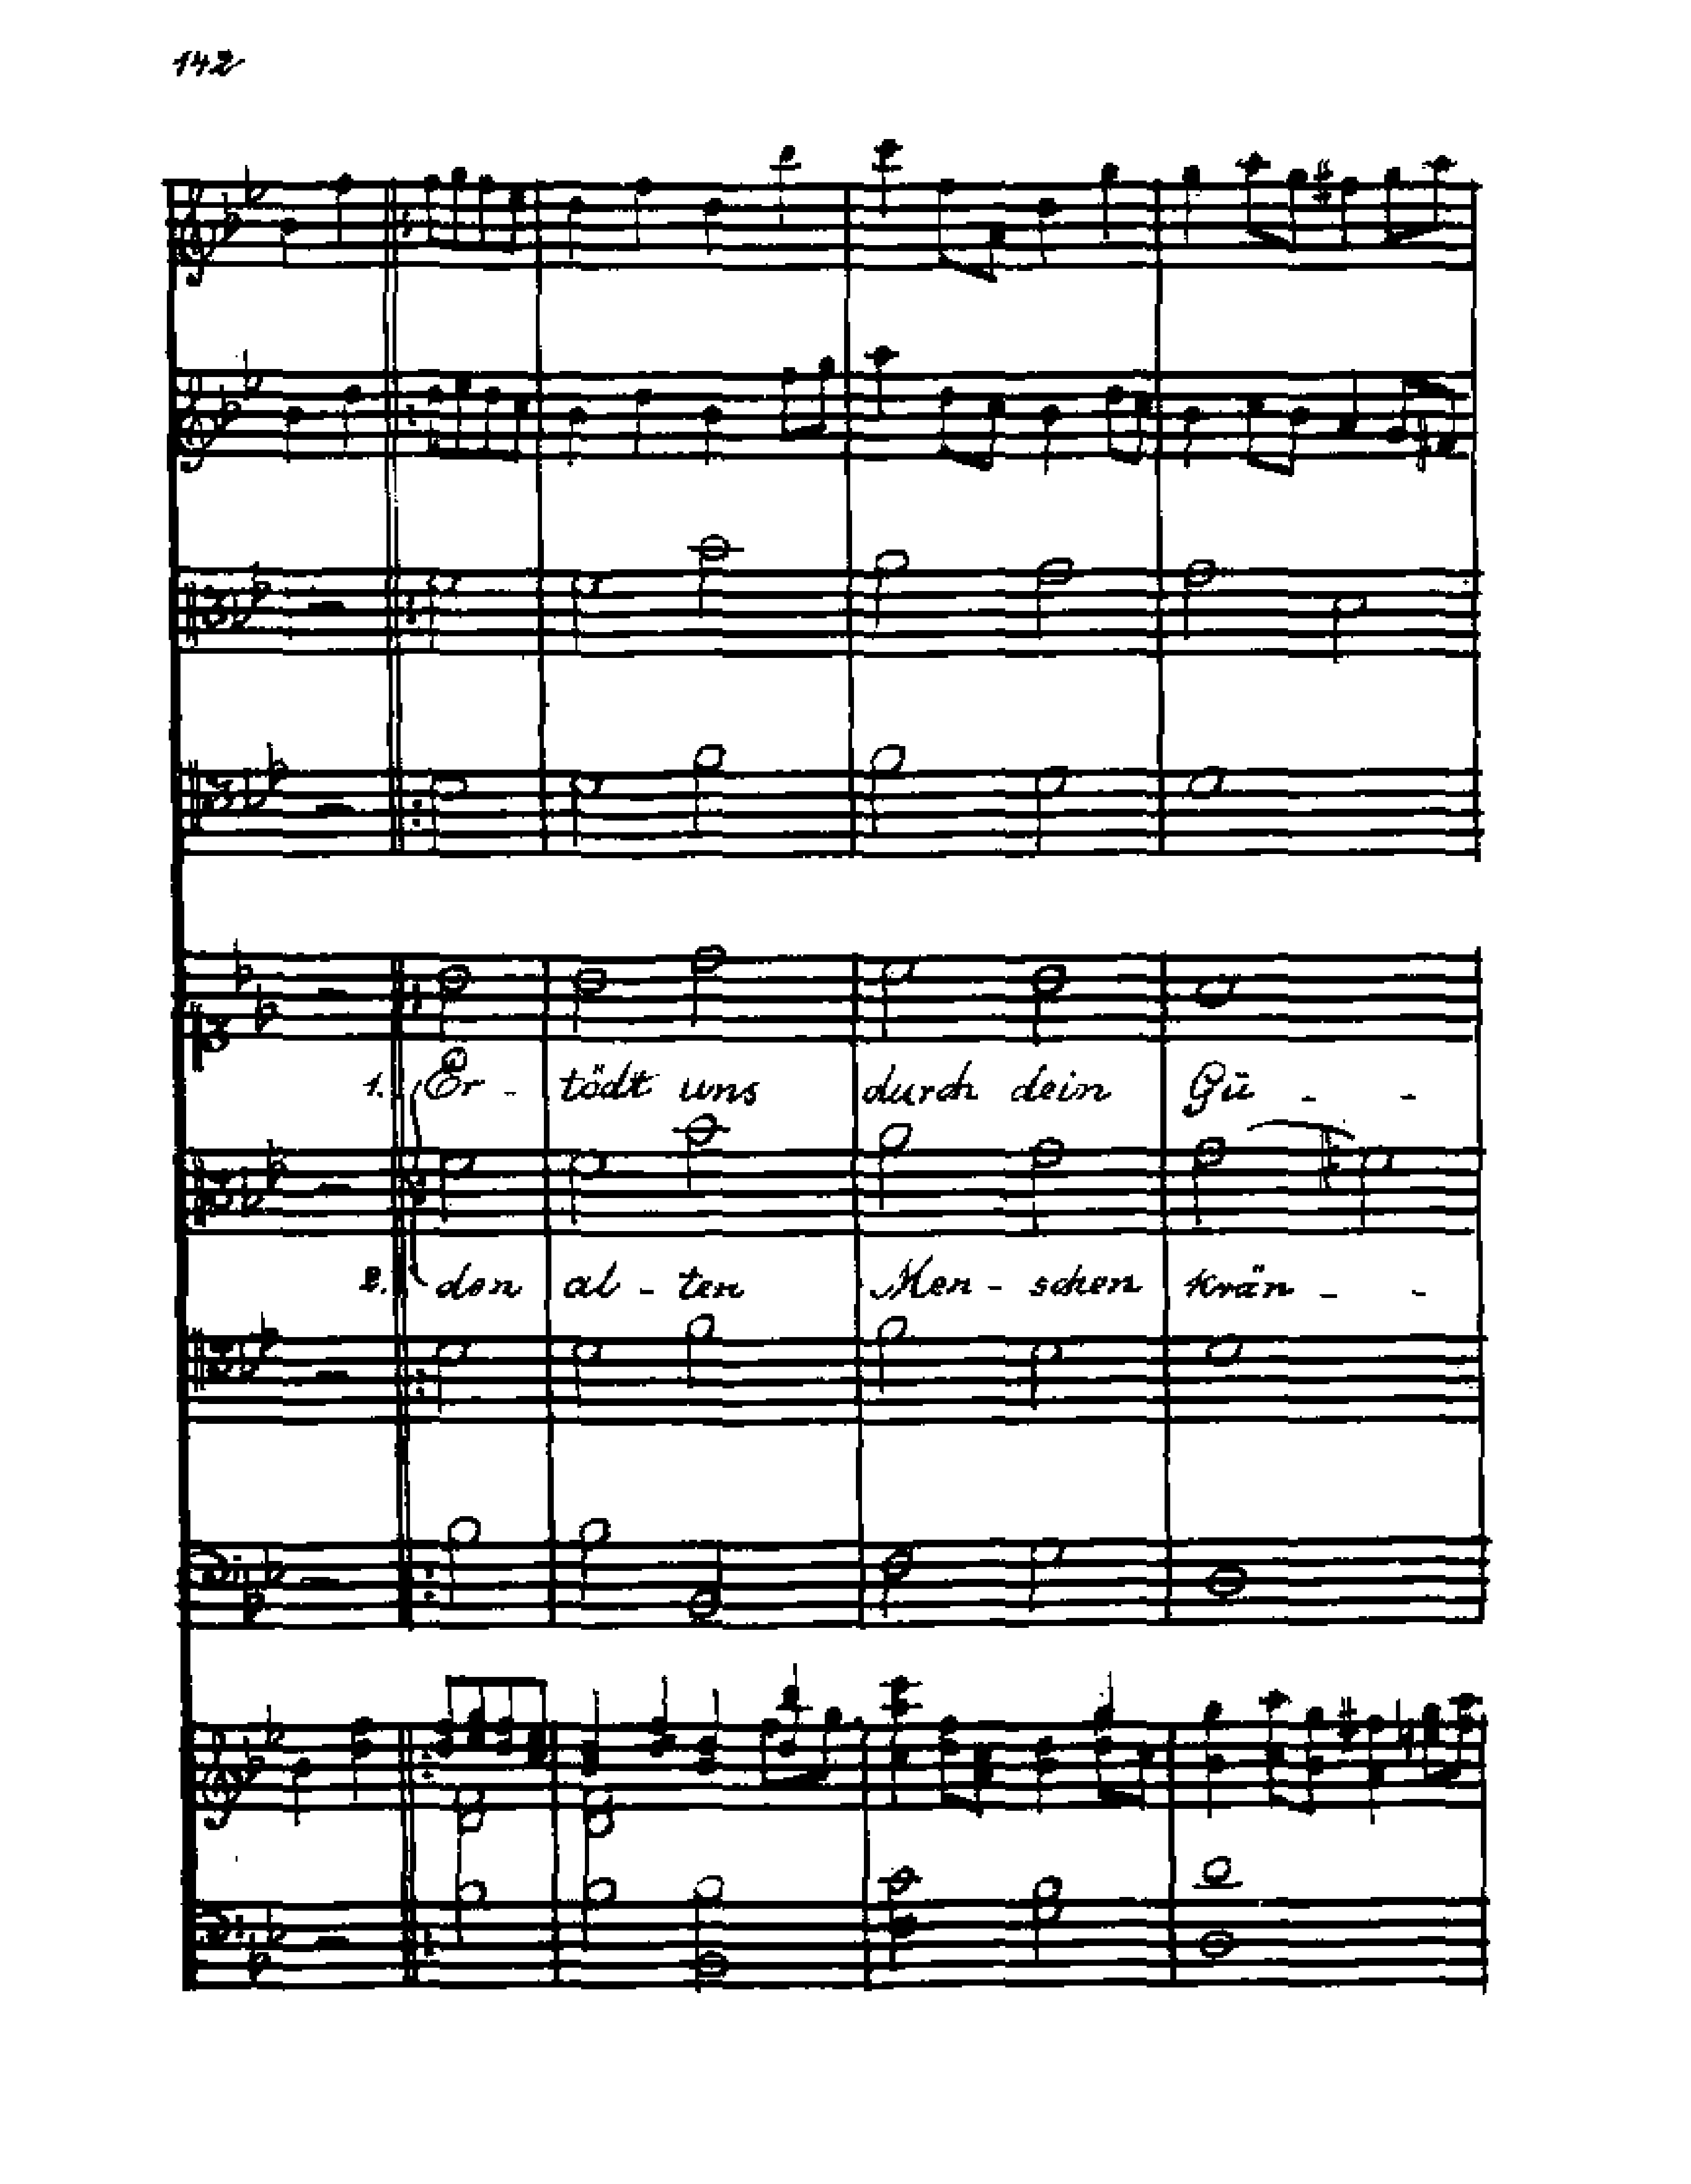 142
1. Er - tödt uns durch dein Gü - -
2. den al - ten Men - schen krän - -